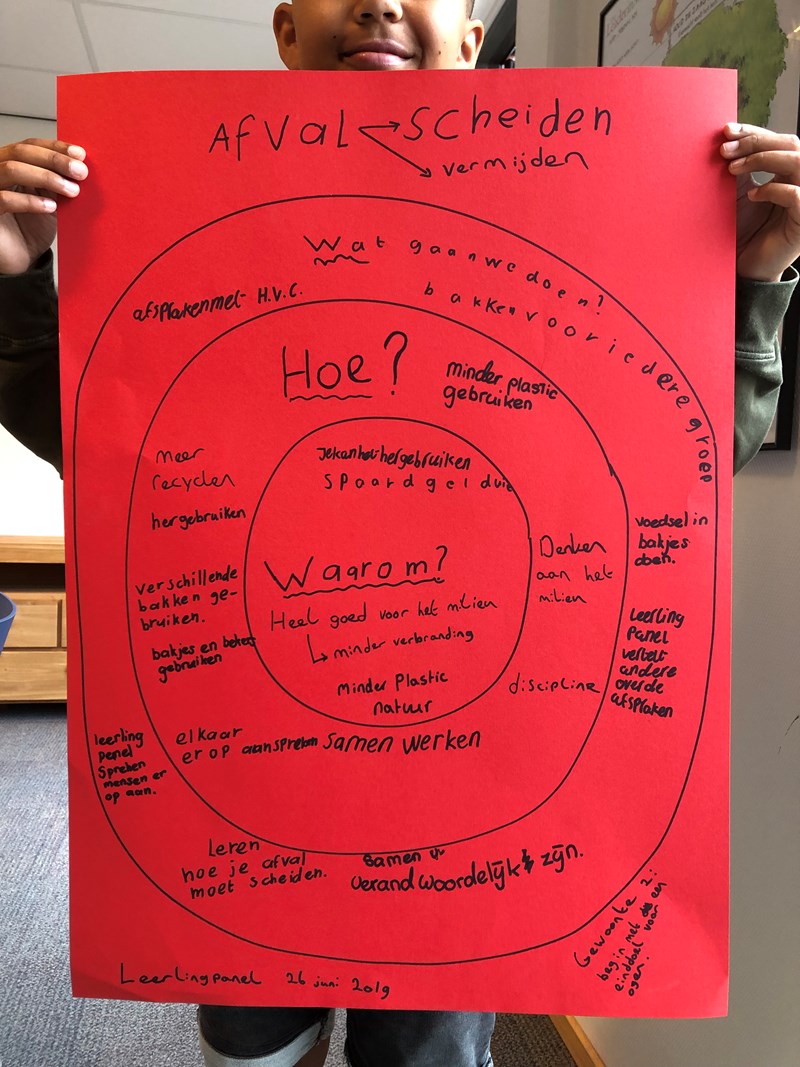 Afval → scheiden
→ vermijden
Wat gaan we doen?
afspraken met H.V.C.
bakken voor iedere groep
Hoe?
minder plastic
gebruiken
meer
recyclen
hergebruiken
verschillende
bakken ge-
bruiken.
bakjes en bekers
gebruiken
Je kan het hergebruiken
Spaard geld
Waarom?
Heel goed voor het milieu
↳ minder verbranding
minder Plastic
natuur
Denken
aan het
milieu
discipline
elkaar
er op aanspreken
samen werken
voedsel in
bakjes
doen.
leerling
panel
vertelt
andere
over de
afspraken
leerling
panel
Spreken
mensen er
op aan.
Leren
hoe je afval
moet scheiden.
Samen
verandwoordelijk zijn.
Gewoonte 2:
begin met een
einddoel voor
ogen.
Leerlingpanel 26 juni 2019